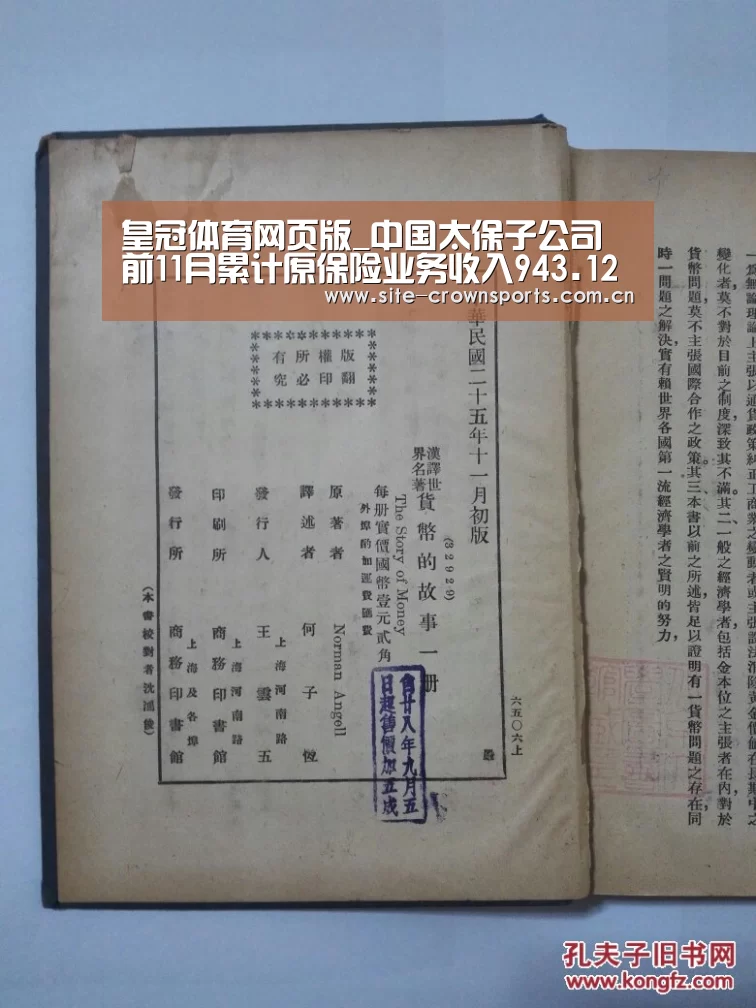 皇冠体育网页版_中国太保子公司
前11月累计原保险业务收入943.12
www.site-crownsports.com.cn
華民國二十五年十一月初版
(32929)
漢譯世
界名著
貨幣的故事一册
The Story of Money
每册實價國幣壹元貳角
外埠酌加運費匯費
原著者 Norman Angell
譯述者 何子恆
發行人 王雲五
上海河南路
印刷所 商務印書館
上海河南路
發行所 商務印書館
上海及各埠
(本書校對者沈
版權所有
翻印必究
六五〇六上
自廿八年九月五
日起售價加五成
一爲無論理論上主張以通貨政策糾正工商業之變動者或主張設法消除黃金價値在長期中之
變化者,莫不對於目前之制度,深致其不滿。其二,一般之經濟學者包括金本位之主張者在內,對於
貨幣問題,莫不主張國際合作之政策。其三,本書以前之所述,皆足以證明有一貨幣問題之存在,同
時一問題之解決,實有賴世界各國第一流經濟學者之賢明的努力,
孔夫子旧书网
www.kongfz.com